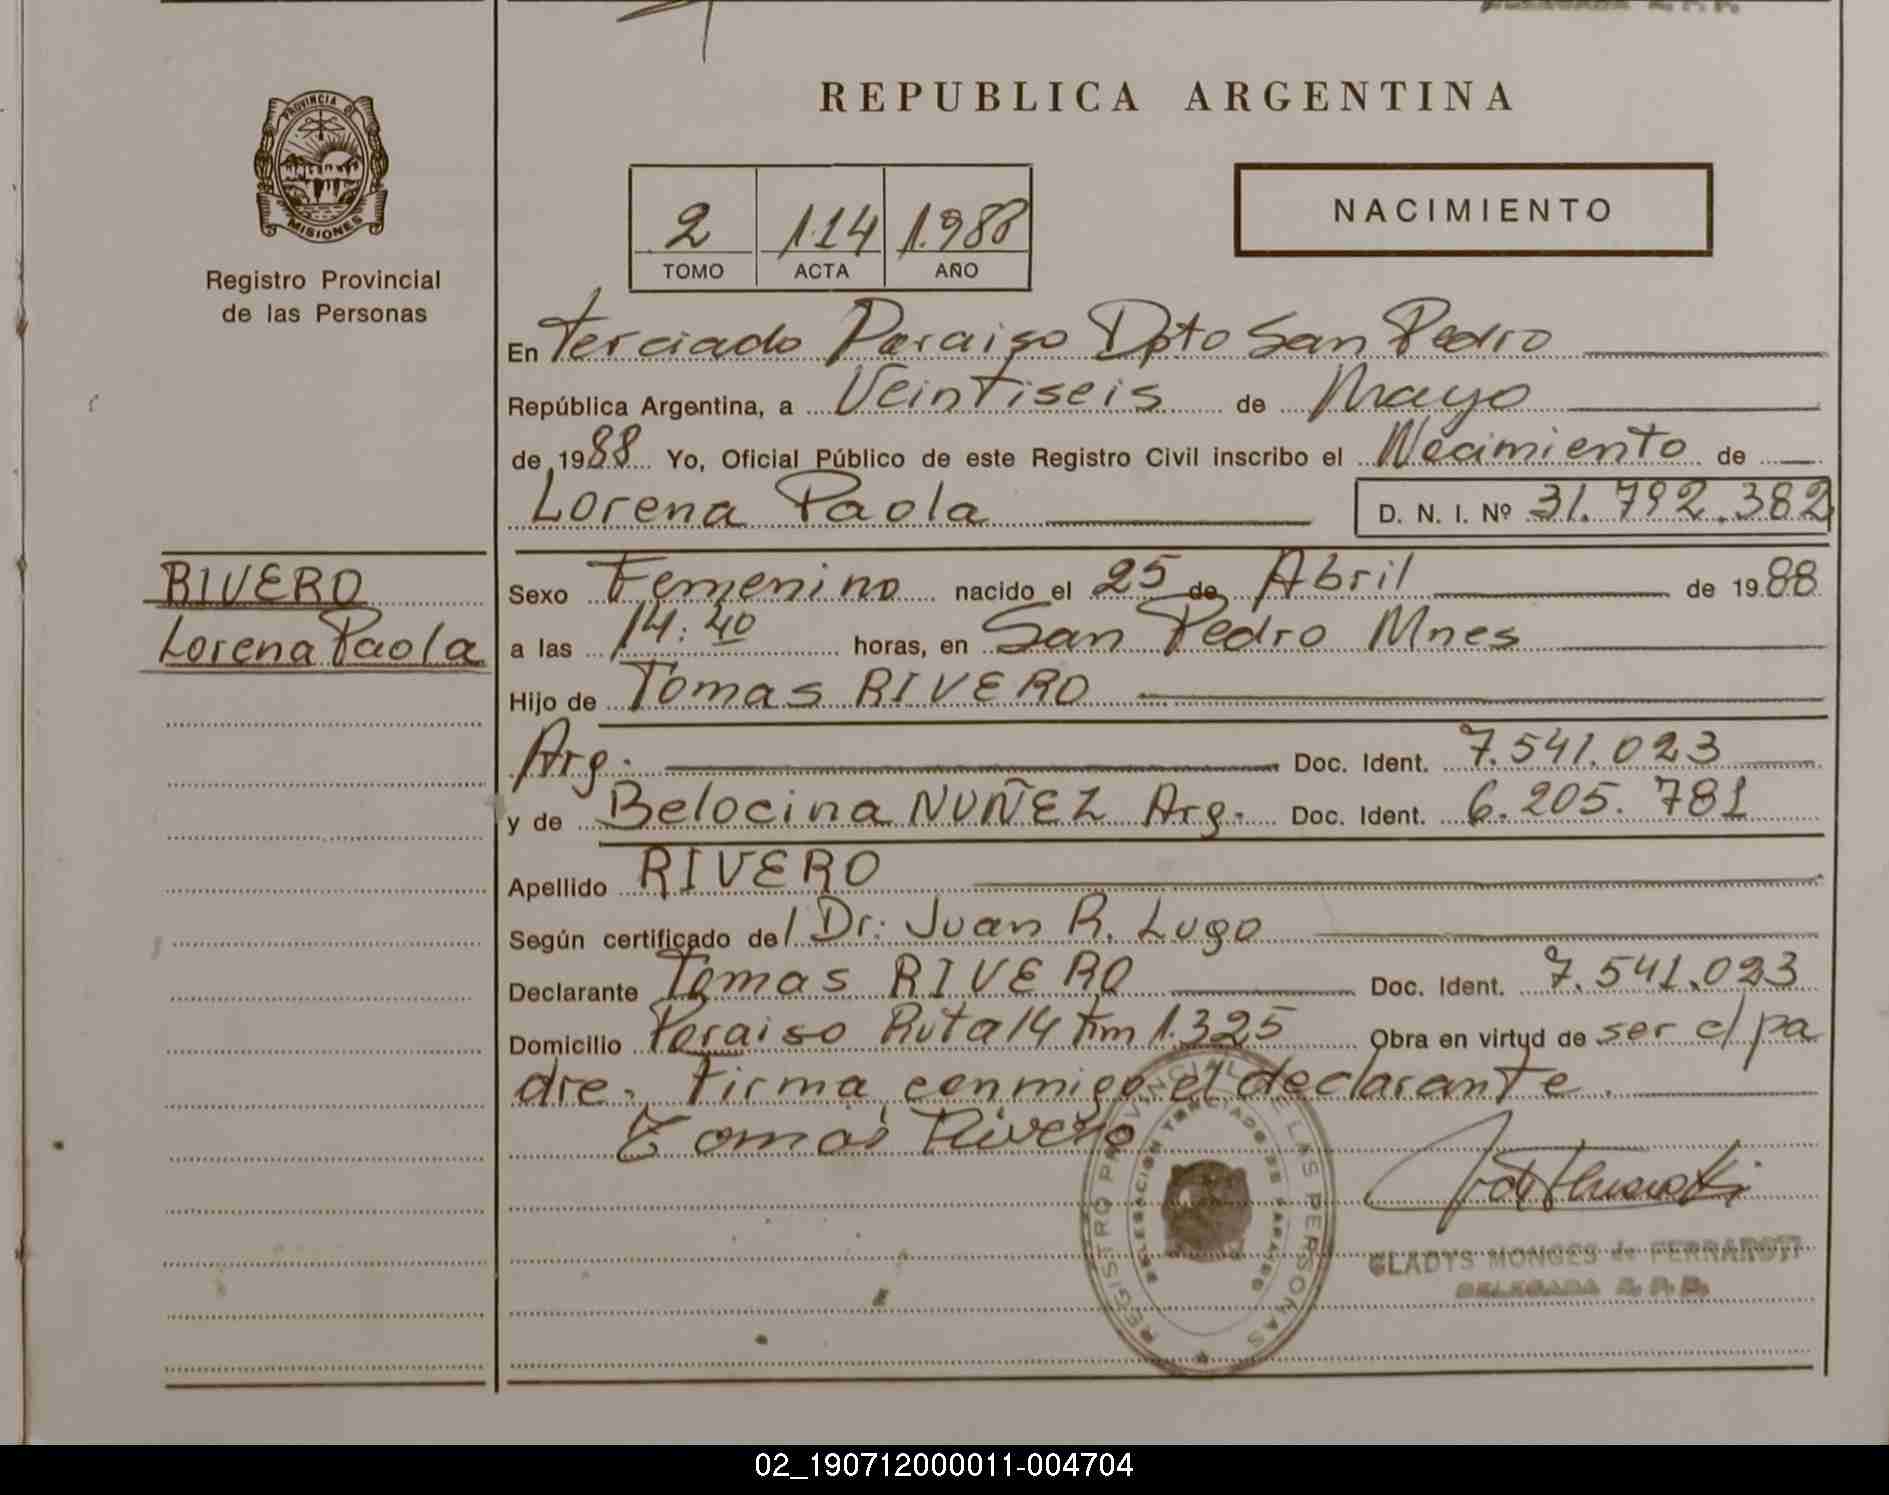 REPUBLICA ARGENTINA
PROVINCIA DE
MISIONES
Registro Provincial
de las Personas
2 114 1.988
TOMO ACTA AÑO
NACIMIENTO
En Terciado Paraiso Dpto San Pedro
República Argentina, a Veintiseis de Mayo
de 1988 Yo, Oficial Público de este Registro Civil inscribo el Nacimiento de
Lorena Paola D. N. I. Nº 31.792.382
RIVERO
Lorena Paola
Sexo Femenino nacido el 25 de Abril de 1988
a las 14:40 horas, en San Pedro Mnes
Hijo de Tomas RIVERO
Arg. Doc. Ident. 7.541.023
y de Belocina NUÑEZ Arg. Doc. Ident. 6.205.781
Apellido RIVERO
Según certificado del Dr: Juan R. Lugo
Declarante Tomas RIVERO Doc. Ident. 7.541.023
Domicilio Paraiso Ruta 14 Km 1.325 Obra en virtud de ser el pa
dre. Firma conmigo el declarante.
Tomas Rivero
REGISTRO PROVINCIAL DE LAS PERSONAS
DELEGACION TERCIADO DE PARAISO
GLADYS MONGES de
DELEGADA R. P. P.
02_190712000011-004704